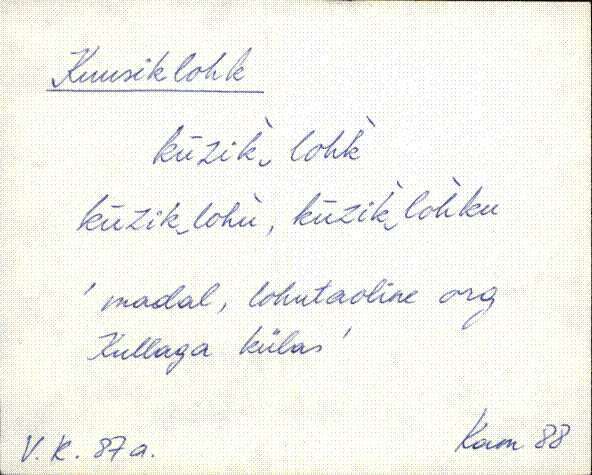 Kuusiklohk
kūzik̀ˬ lohk̀
kūzikˬlohù, kūzik̀ˬlòhku
' madal, lohutaoline org
Kullaga külas '
V. K. 87a.
Kam 88